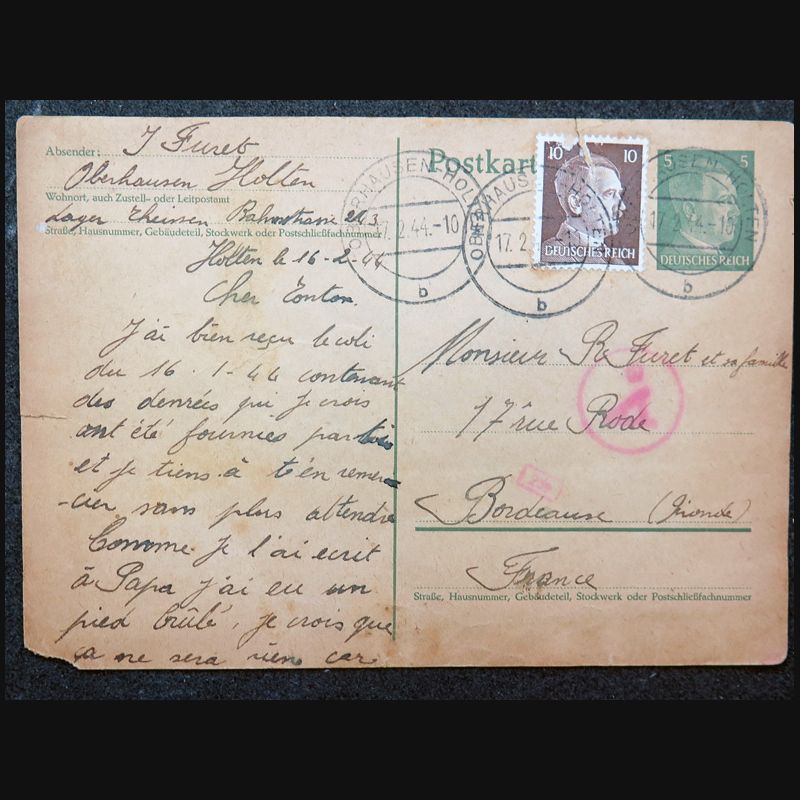 Absender: J Furet
Oberhausen Holten
Wohnort, auch Zustell- oder Leitpostamt
Lager Theissen Bahnstrasse 23
Straße, Hausnummer, Gebäudeteil, Stockwerk oder Postschließfachnummer
Holten le 16-2-44
Cher Tonton
J'ai bien reçu le coli
du 16-1-44 contenant
des denrées qui je crois
ont été fournies par toi
et je tiens à t'en remer
-cier sans plus attendre
Comme je l'ai écrit
à Papa j'ai eu un
pied brûlé, je crois que
ça ne sera rien car
Postkarte
OBERHAUSEN-HOLTEN
17.2.44.-10
b
OBERHAUSEN-HOLTEN
17.2.
b
10 10
DEUTSCHES REICH
5 5
DEUTSCHES REICH
17.2.44.-10
b
Monsieur R Furet et sa famille
17 rue Rode
Bordeaux (Gironde)
France
Straße, Hausnummer, Gebäudeteil, Stockwerk oder Postschließfachnummer